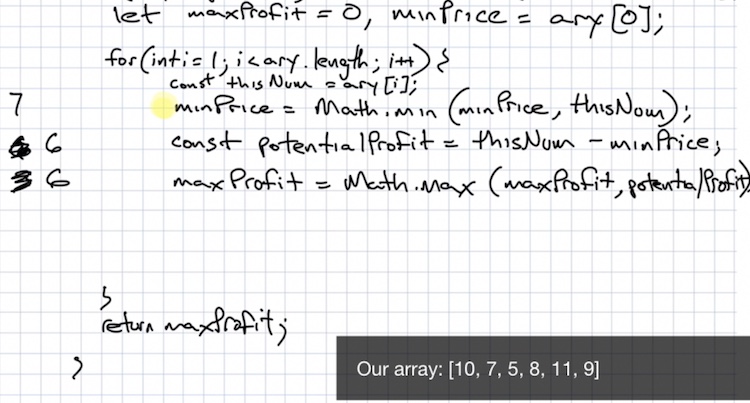 let maxProfit = 0, minPrice = ary[0];
for(int i = 1; i < ary.length; i++) {
const thisNum = ary[i];
7 minPrice = Math.min (minPrice, thisNum);
6 const potentialProfit = thisNum - minPrice;
6 maxProfit = Math.max (maxProfit, potentialProfit)
}
return maxProfit;
}
Our array: [10, 7, 5, 8, 11, 9]